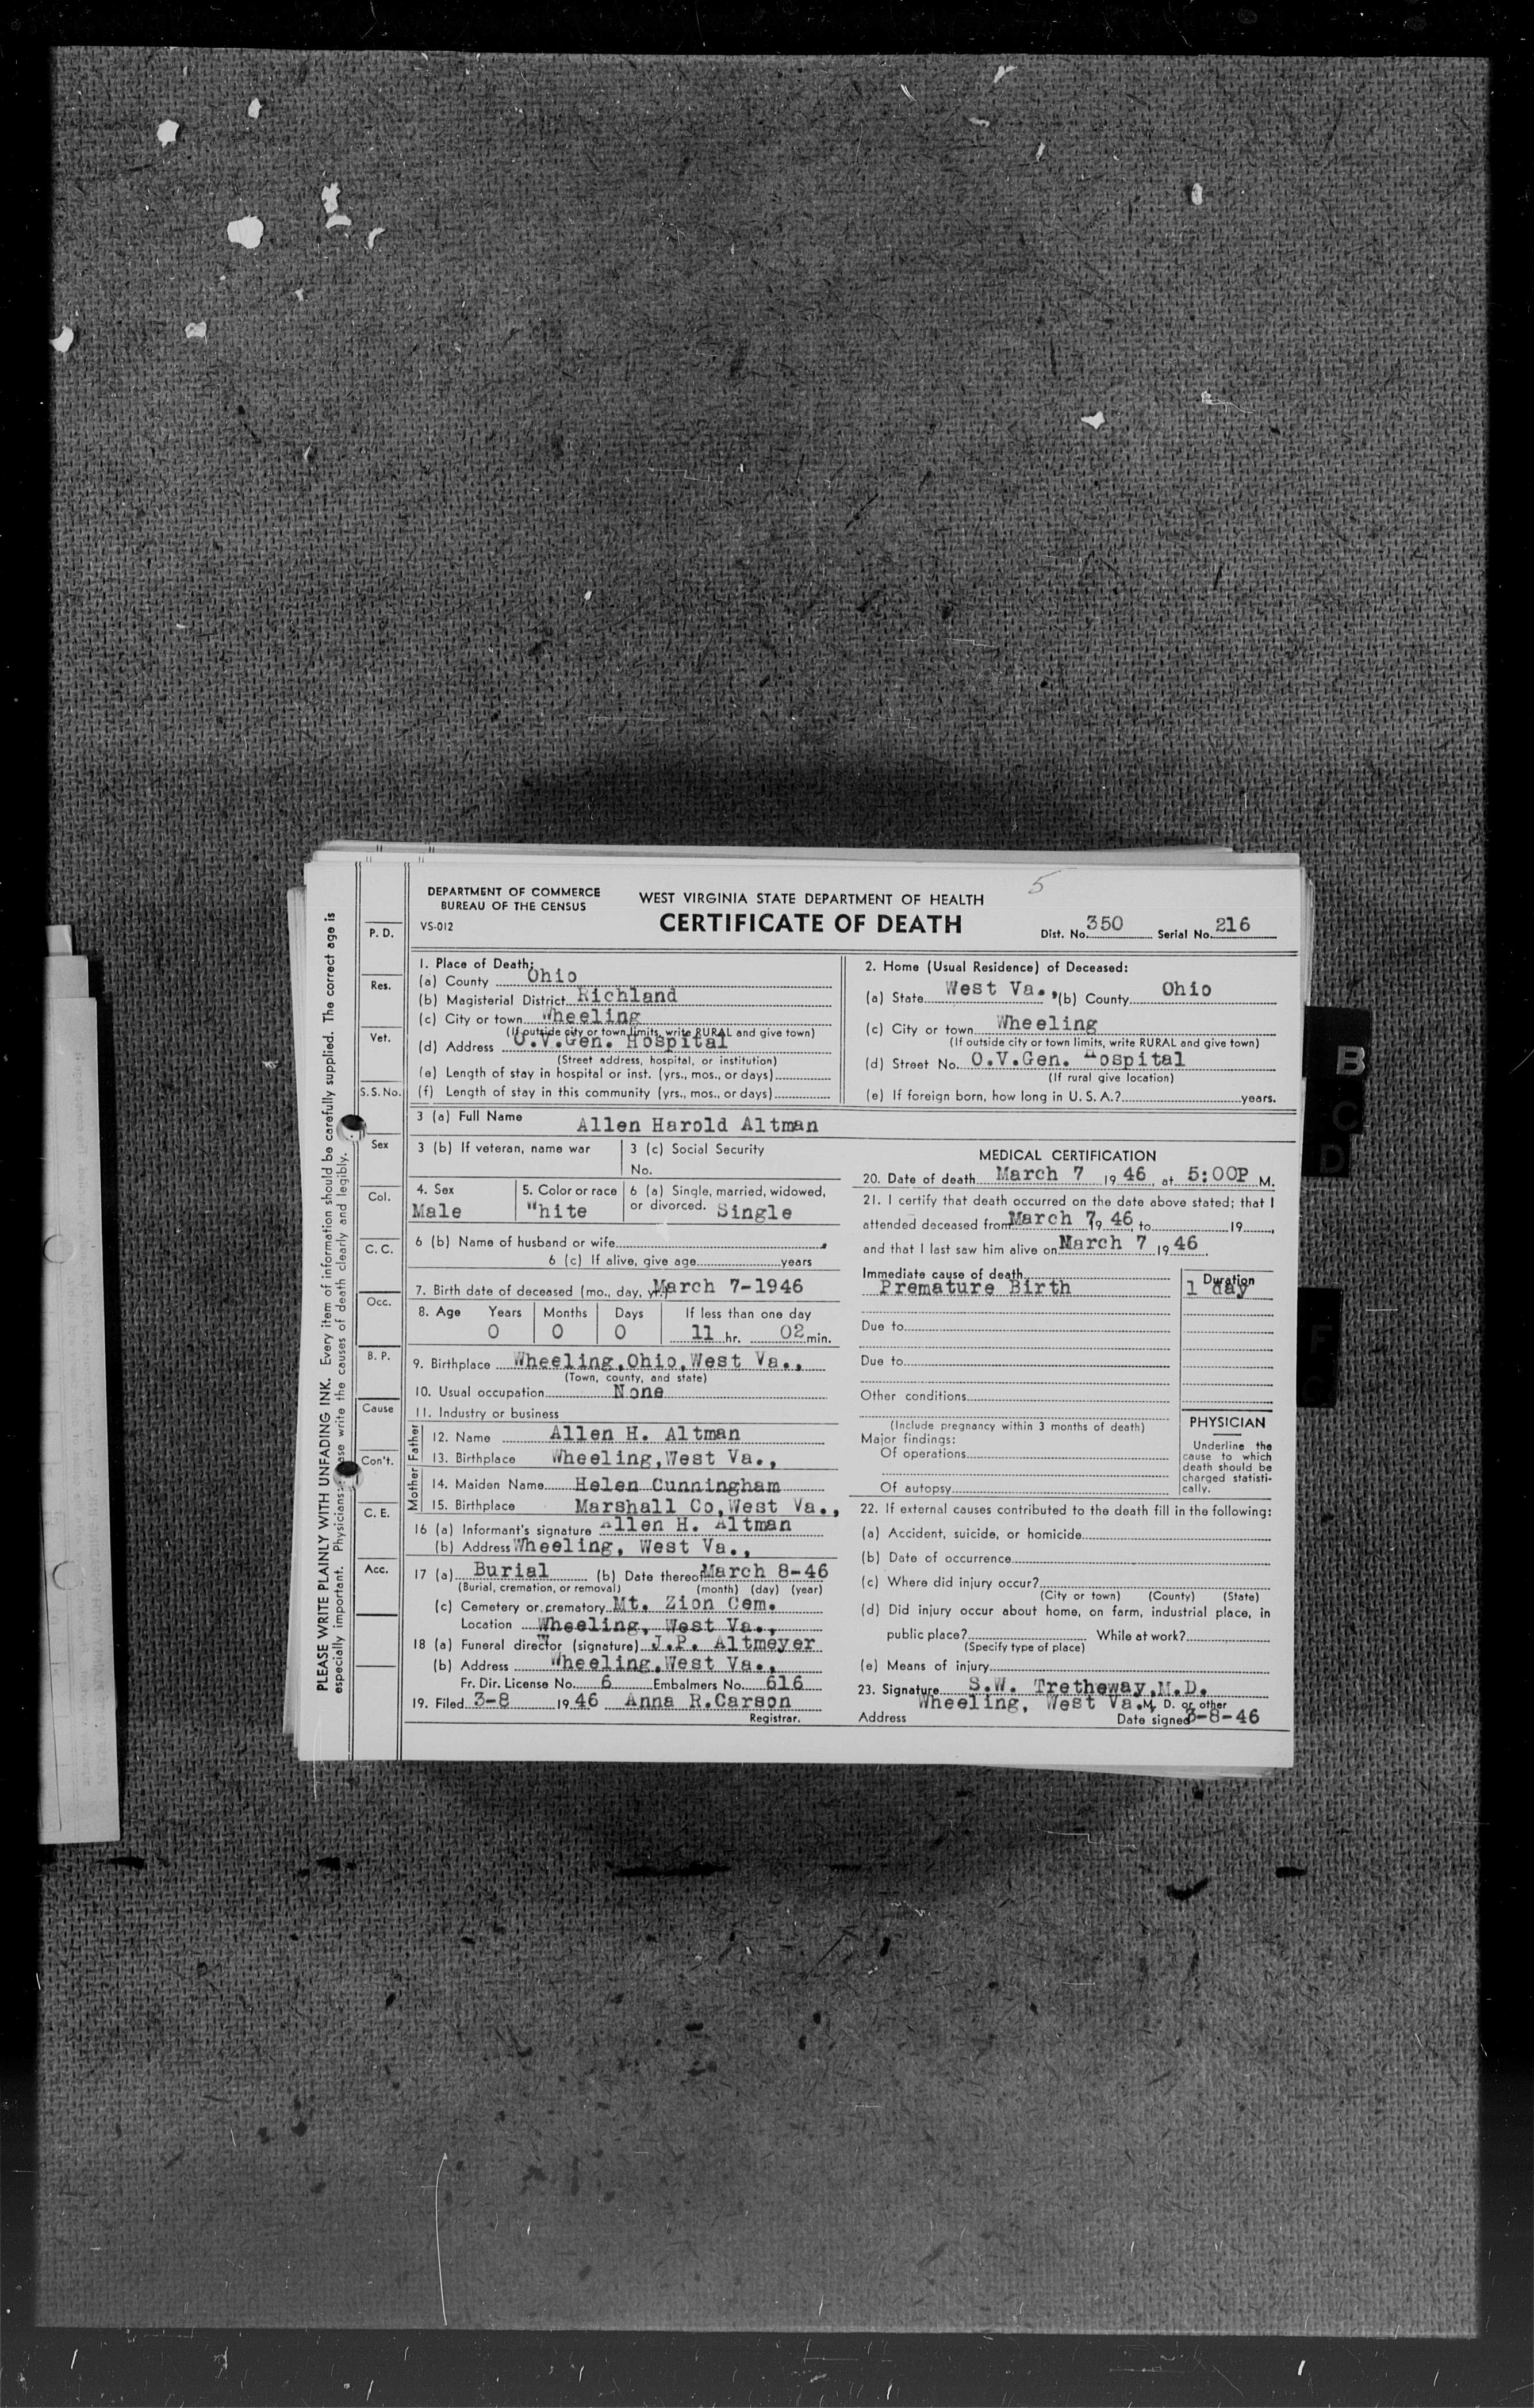 5
DEPARTMENT OF COMMERCE
BUREAU OF THE CENSUS
VS-012
WEST VIRGINIA STATE DEPARTMENT OF HEALTH
CERTIFICATE OF DEATH
Dist. No. 350 Serial No. 216
PLEASE WRITE PLAINLY WITH UNFADING INK. Every item of information should be carefully supplied. The correct age is
especially important. Physicians: write the causes of death clearly and legibly.
P. D.
Res.
Vet.
S. S. No.
Sex
Col.
C. C.
Occ.
B. P.
Cause
Con't.
C. E.
Acc.
1. Place of Death:
(a) County Ohio
(b) Magisterial District Richland
(c) City or town Wheeling
(If outside city or town limits, write RURAL and give town)
(d) Address O.V.Gen. Hospital
(Street address, hospital, or institution)
(e) Length of stay in hospital or inst. (yrs., mos., or days)
(f) Length of stay in this community (yrs., mos., or days)
2. Home (Usual Residence) of Deceased:
(a) State West Va., (b) County Ohio
(c) City or town Wheeling
(If outside city or town limits, write RURAL and give town)
(d) Street No. O.V.Gen. Hospital
(If rural give location)
(e) If foreign born, how long in U. S. A.? years.
3 (a) Full Name Allen Harold Altman
3 (b) If veteran, name war
3 (c) Social Security
No.
4. Sex
Male
5. Color or race
White
6 (a) Single, married, widowed,
or divorced. Single
6 (b) Name of husband or wife
6 (c) If alive, give age years
7. Birth date of deceased (mo., day, yr.) March 7-1946
8. Age Years Months Days If less than one day
0 0 0 11 hr. 02 min.
9. Birthplace Wheeling,Ohio,West Va.,
(Town, county, and state)
10. Usual occupation None
11. Industry or business
Father
12. Name Allen H. Altman
13. Birthplace Wheeling,West Va.,
Mother
14. Maiden Name Helen Cunningham
15. Birthplace Marshall Co,West Va.,
16 (a) Informant's signature Allen H. Altman
(b) Address Wheeling, West Va.,
17 (a) Burial (b) Date thereof March 8-46
(Burial, cremation, or removal) (month) (day) (year)
(c) Cemetery or crematory Mt. Zion Cem.
Location Wheeling, West Va.,
18 (a) Funeral director (signature) J.P. Altmeyer
(b) Address Wheeling,West Va.,
Fr. Dir. License No. 6 Embalmers No. 616
19. Filed 3-8 1946 Anna R.Carson
Registrar.
MEDICAL CERTIFICATION
20. Date of death March 7 1946, at 5:00P M.
21. I certify that death occurred on the date above stated; that I
attended deceased from March 7 19 46, to 19
and that I last saw him alive on March 7 1946.
Immediate cause of death Duration
Premature Birth 1 day
Due to
Due to
Other conditions
(Include pregnancy within 3 months of death)
Major findings:
Of operations
Of autopsy
PHYSICIAN
Underline the
cause to which
death should be
charged statisti-
cally.
22. If external causes contributed to the death fill in the following:
(a) Accident, suicide, or homicide
(b) Date of occurrence
(c) Where did injury occur?
(City or town) (County) (State)
(d) Did injury occur about home, on farm, industrial place, in
public place? While at work?
(Specify type of place)
(e) Means of injury
23. Signature S.W. Tretheway,M.D.
M. D. or other
Address Wheeling, West Va. Date signed 3-8-46
B
C
D
F